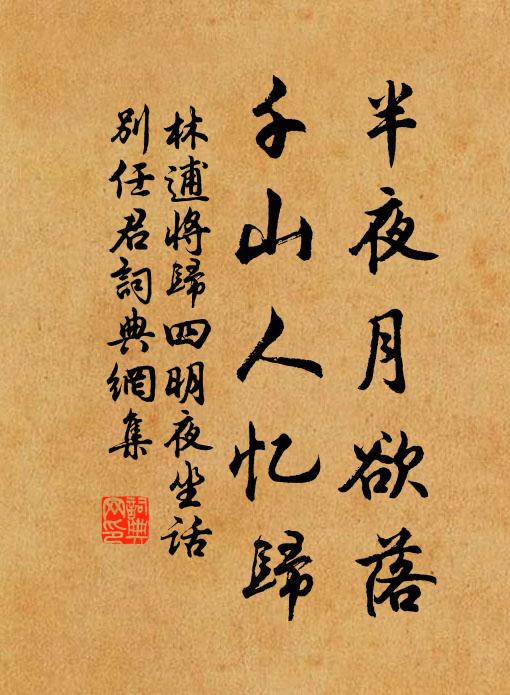 半夜月欲落
千山人忆歸
林逋將歸四明夜坐話
別任君詞典網集
詞典
网印